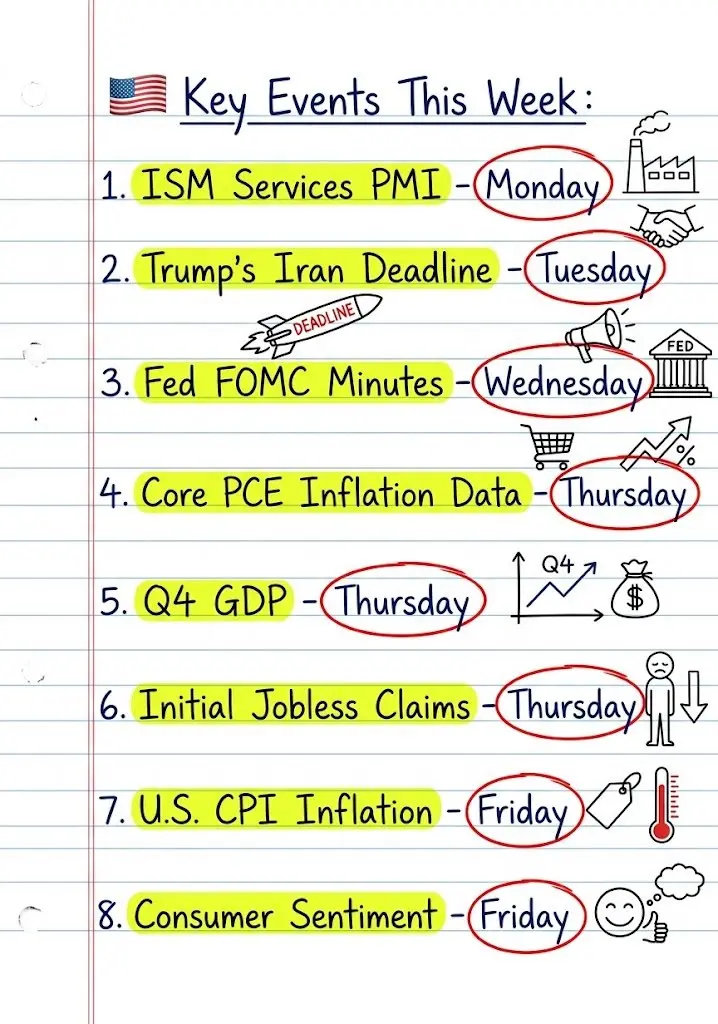 Key Events This Week:
1. ISM Services PMI - Monday
2. Trump's Iran Deadline - Tuesday
DEADLINE
FED
3. Fed FOMC Minutes - Wednesday
%
4. Core PCE Inflation Data - Thursday
Q4
5. Q4 GDP - Thursday
$
6. Initial Jobless Claims - Thursday
7. U.S. CPI Inflation - Friday
8. Consumer Sentiment - Friday